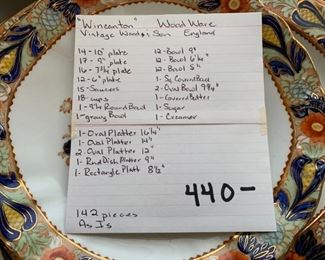 "Wincanton" Wood Ware
Vintage Wood & Son England
14-10" plate
17-9" plate
16-7¾" plate
12-6" plate
15-Saucers
18-cups
1-9¼ Round Bowl
1-gravy Bowl
12-Bowl 9"
12-Bowl 6¼"
12-Bowl 5½
1-Sq Covered Bowl
2-Oval Bowl 9¾"
1-Covered Butter
1-Sugar
1-Creamer
1-Oval Platter 16¼"
1-Oval Platter 14"
2-Oval Platter 12"
1-Rnd Dish Platter 9"
1-Rectangle Platt 8½"
440-
142 pieces
As Is